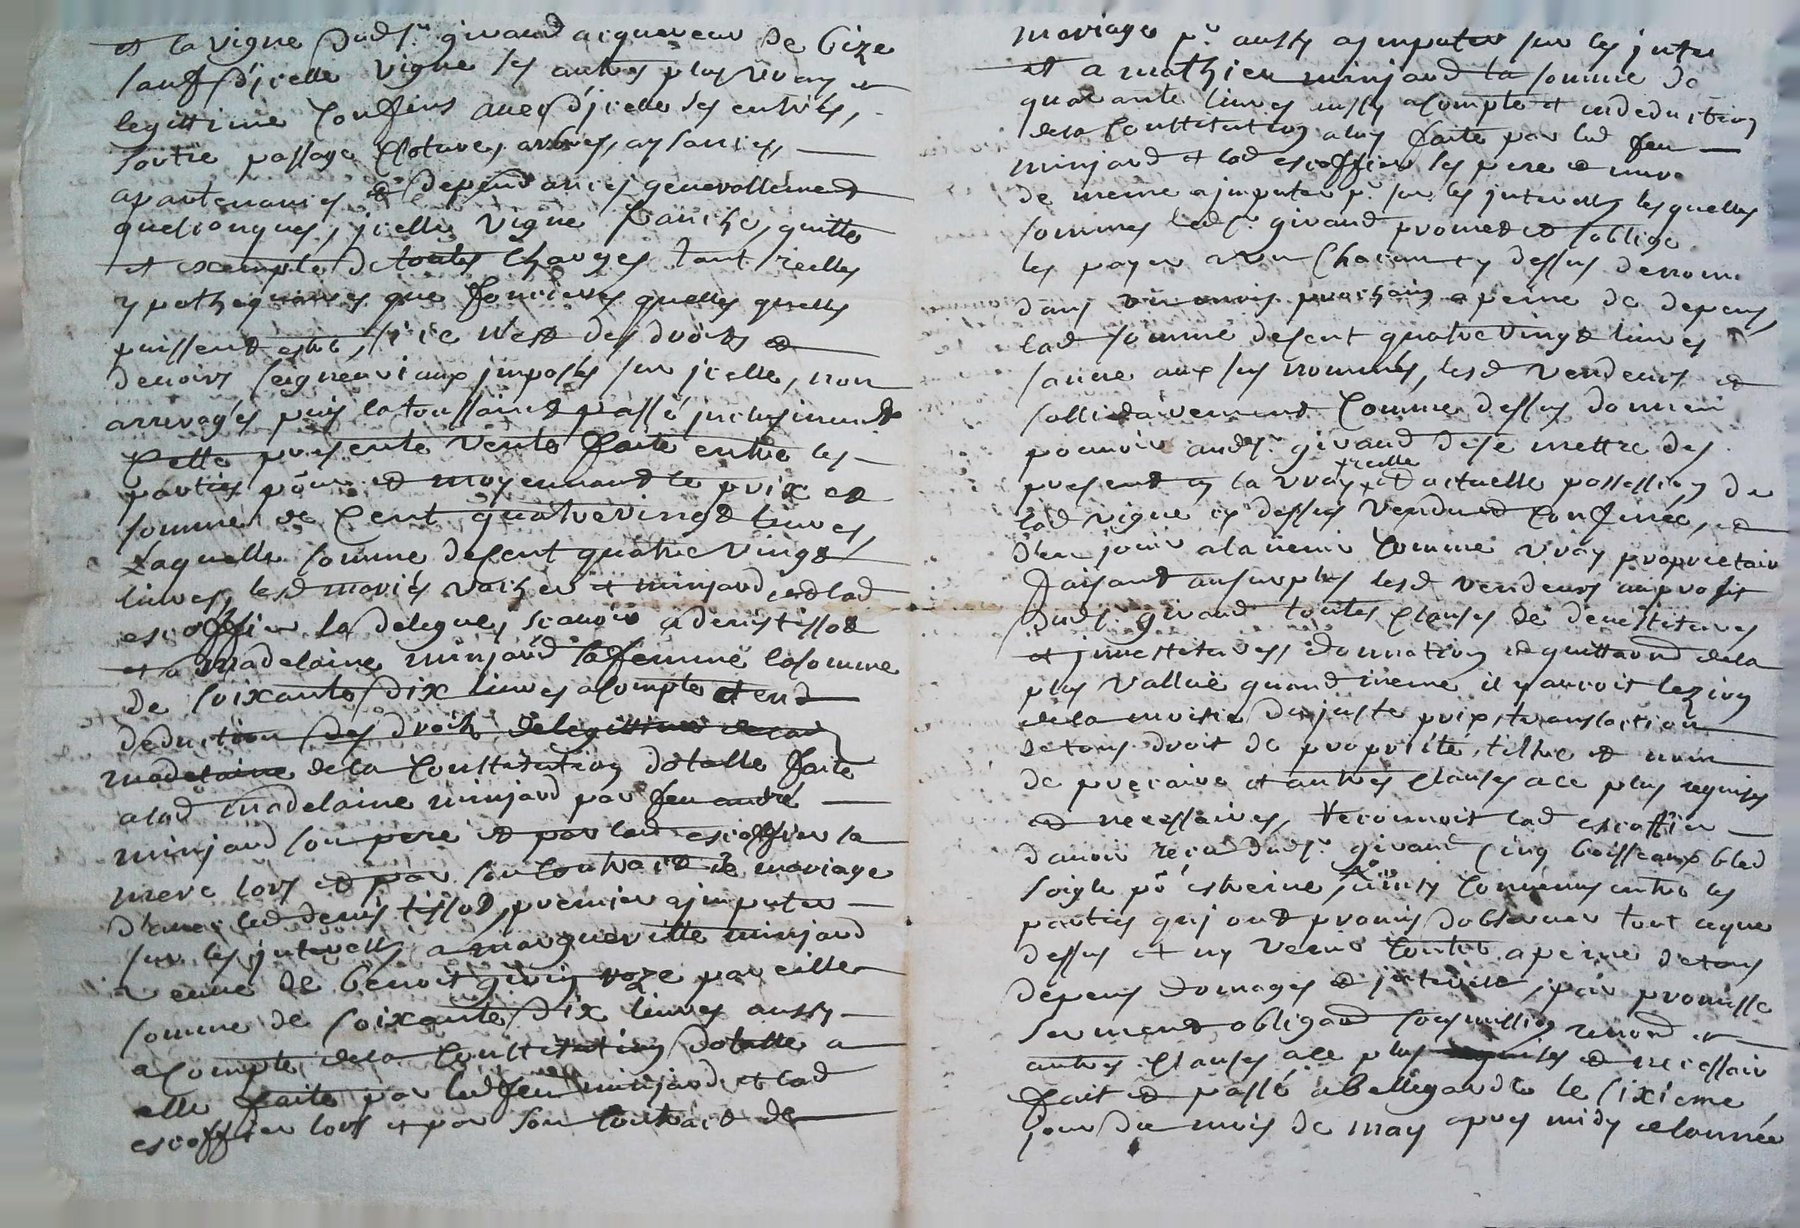 et la vigne dud sr. giraud acquereur de bize
sauf d'jcelle vigne ses autres plus vrays et
legittime confins avec d'jcelle ses entrées,
sortie passage clotures arbres, aysances,
apartenances et dependances generallement
quelconques, jcelle vigne franche, quitte
et exempte de toutes charges tant reelles
ypothequaires que foncieres quelles quelles
puissent estre, si ce n'est des droits et
devoirs seigneuriaux jmposés sur jcelle, non
arreragés puis la toussaint passé jnclusivement
Cette presente vente faite entre les
parties pour et moyennant le prix et
somme de cent quatrevingt livres,
Laquelle somme de cent quatre vingt
livres, lesd mariés vacher et minjard et lad
escoffier la deleguent scavoir a denis tissot
et a madelaine minjard sa femme la somme
de soixante dix livres acompte et en
deduction des droits de legittime de lad
madelaine de la constitution dotalle faite
a lad madelaine minjard par feu andré
minjard son pere et par lad escoffier sa
mere lors et par son contract de mariage
d'avec led denis tissot, premier ajmputer
sur les jnterets, a margueritte minjard
veuve de benoit pareille
somme de soixante dix livres aussy
acompte de la constitution dotalle a
elle faite par led feu minjard et lad
escoffier lors et par son contract de
mariage pr. aussy ajmputer sur les jnter
et a mathieu minjard la somme de
quarante livres aussy acompte et en deduction
de la constitution a luy faite par led feu
minjard et lad escoffier ses pere et mere
de meme ajmputer pr. sur les jnterets lesquelles
sommes led sr. giraud promet et soblige
les payer a un chacun cy dessus denommé
dans un mois prochain a peine de depens,
lad somme de cent quatre vingt livres
aux sus nommés, lesd vendeurs et
sollidairement comme dessus donnent
pouvoir aud sr. giraud de se mettre des
present en la vraye reelle et actuelle possession de
lad vigne cy dessus vendue et confinée, et
d'en jouir a la venir comme vray proprietaire
faisant au surplus lesd vendeurs au profit
dud sr. giraud toutes clauses de devestitures
et jnvestitures donnation et quittance de la
plus vallue quand meme il y auroit lezion
de la moitié du juste prix, translation
de tous droit de proprieté, tiltre et nom
de precaire et autres clauses a ce plus requises
et necessaires, reconnoit lad escoffier
d'avoir receu dud sr. giraud cinq boisseaux bled
soigle pr. estreine, ainsy convenus entre les
parties qui ont promis dobserver tout ce que
dessus et ny venir contre a peine de tous
depens domages et jnterests, par promesse
serment obligaon soumission renond et
autres clauses a ce plus requises et necessair
fait et passé a bellegarde le sixieme
jour du mois de may apres midy de lannée